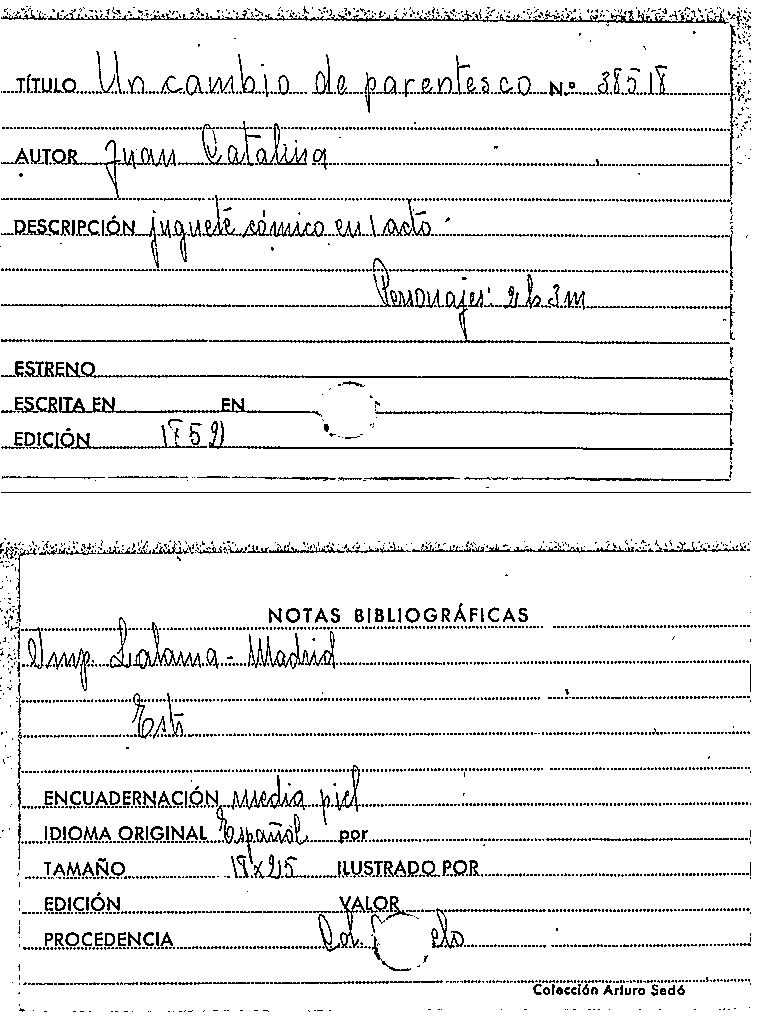 TÍTULO Un cambio de parentesco N.º 38518
AUTOR Juan Catalina
DESCRIPCIÓN juguete cómico en 1 acto.
Personajes: 2 h 3 m
ESTRENO
ESCRITA EN EN
EDICIÓN
NOTAS BIBLIOGRÁFICAS
Imp. Lalama - Madrid
ENCUADERNACIÓN media piel
IDIOMA ORIGINAL Español por
TAMAÑO ILUSTRADO POR
EDICIÓN VALOR
PROCEDENCIA Col.
Colección Arturo Sedó